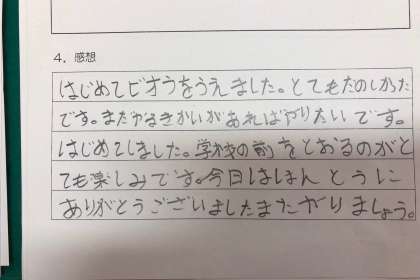 4. 感想
はじめてビオラをうえました。とてもたのしかった
です。またやるきかいがあればやりたいです。
はじめてしました。学校の前をとおるのがと
ても楽しみです。今日はほんとうに
ありがとうございましたまたやりましょう。